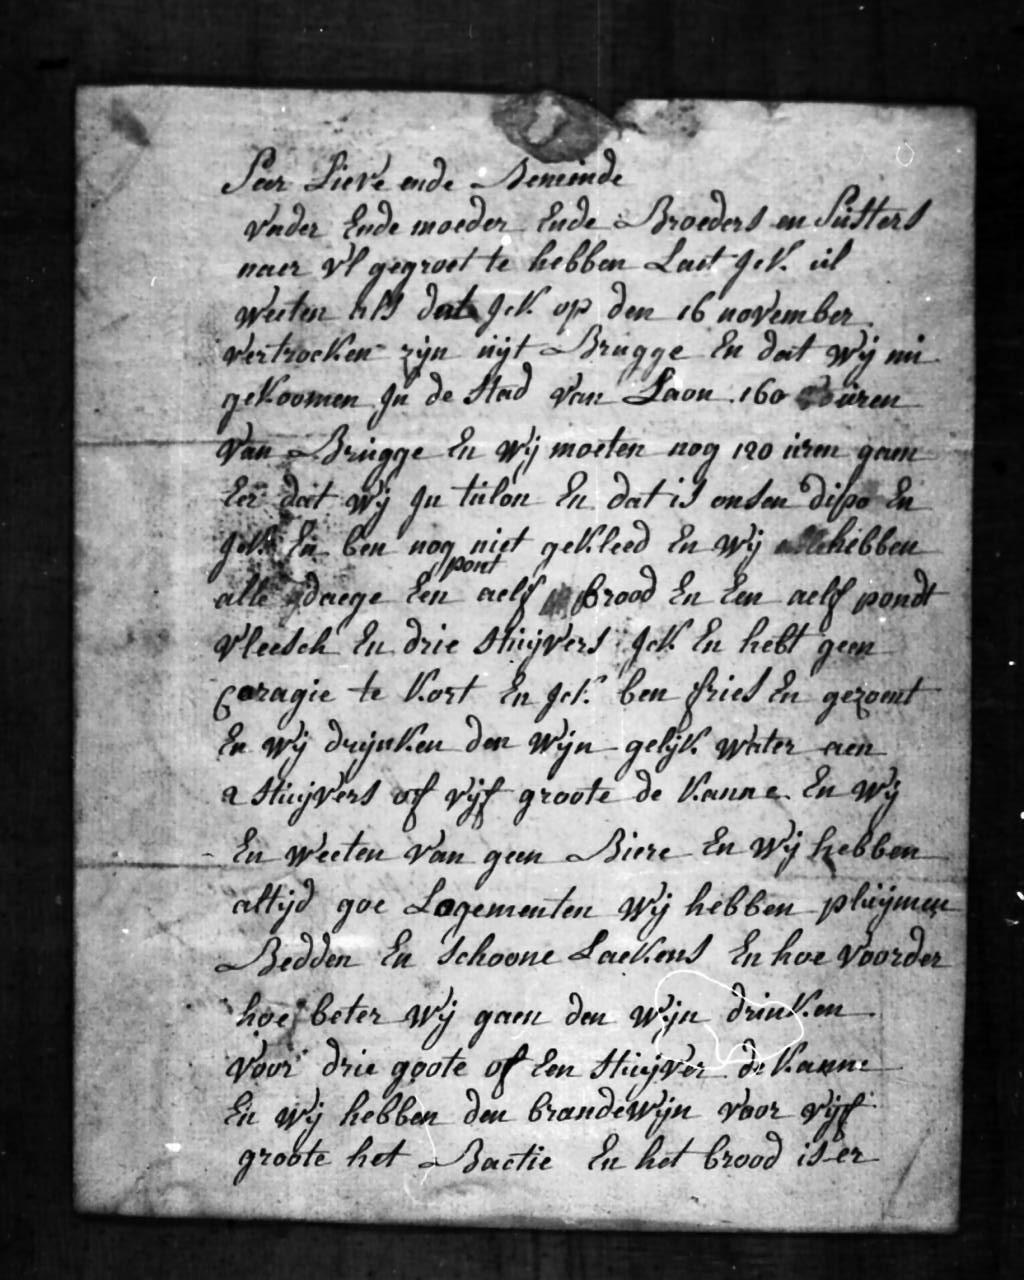 Seer Lieve ende Beminde
vader Ende moeder Ende Broeders en Susters
naer Vl gegroet te hebben Laet Jck ul
weeten als dat Jck op den 16 november
vertrocken zijn uijt Brugge En dat wij nu
gekoomen Jn de stad van Laon 160 uuren
van Brugge En wij moeten nog 120 uren gaen
Eer dat wij Jn tulon En dat is onsen dipo En
Jck En ben nog niet gekleed En wij hebben
pont
alle daege Een aelf brood En Een aelf pondt
vleesch En drie stuijvers Jck En hebt geen
Coragie te kort En Jck ben fries En gezoent
En wij drijnken den wijn gelijk water aen
2 stuijvers of vijf groote de kanne En wij
En weeten van geen Biere En wij hebben
altijd goe Logementen wij hebben pluijmen
Bedden En schoone Laekens En hoe voorder
hoe beter wij gaen den wijn drinken
voor drie goote of Een stuijver de kanne
En wij hebben den brandewijn voor vijf
groote het Bactie En het brood is er